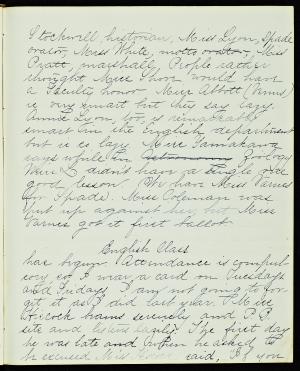 Stockwell historian, Miss Lyon, Spade
orator, Miss White, motto orator, Miss
Pratt, marshall. People rather
thought Miss Thorn would have
a Faculty honor. Miss Abbott (Venus)
is very smart but they say lazy.
Annie Lyon, too, is remarkably
smart in the English department
but is lazy. Miss Yamakawa
says while in Astronomy Zoology
Miss L didn't have a single
good lesson. We have Miss Varnes
for Spade. Miss Coleman was
put up against her, but Miss
Varnes got it first ballot.
English Class
has begun. Attendance is compul
sory so I wear a card on Tuesdays
and Fridays. I am not going to for-
get it as I did last year. Miss
Hiscock hams serenely and P.P.
sits and listens lazily. The first day
he was late and when he asked to
be excused Miss said, "If you